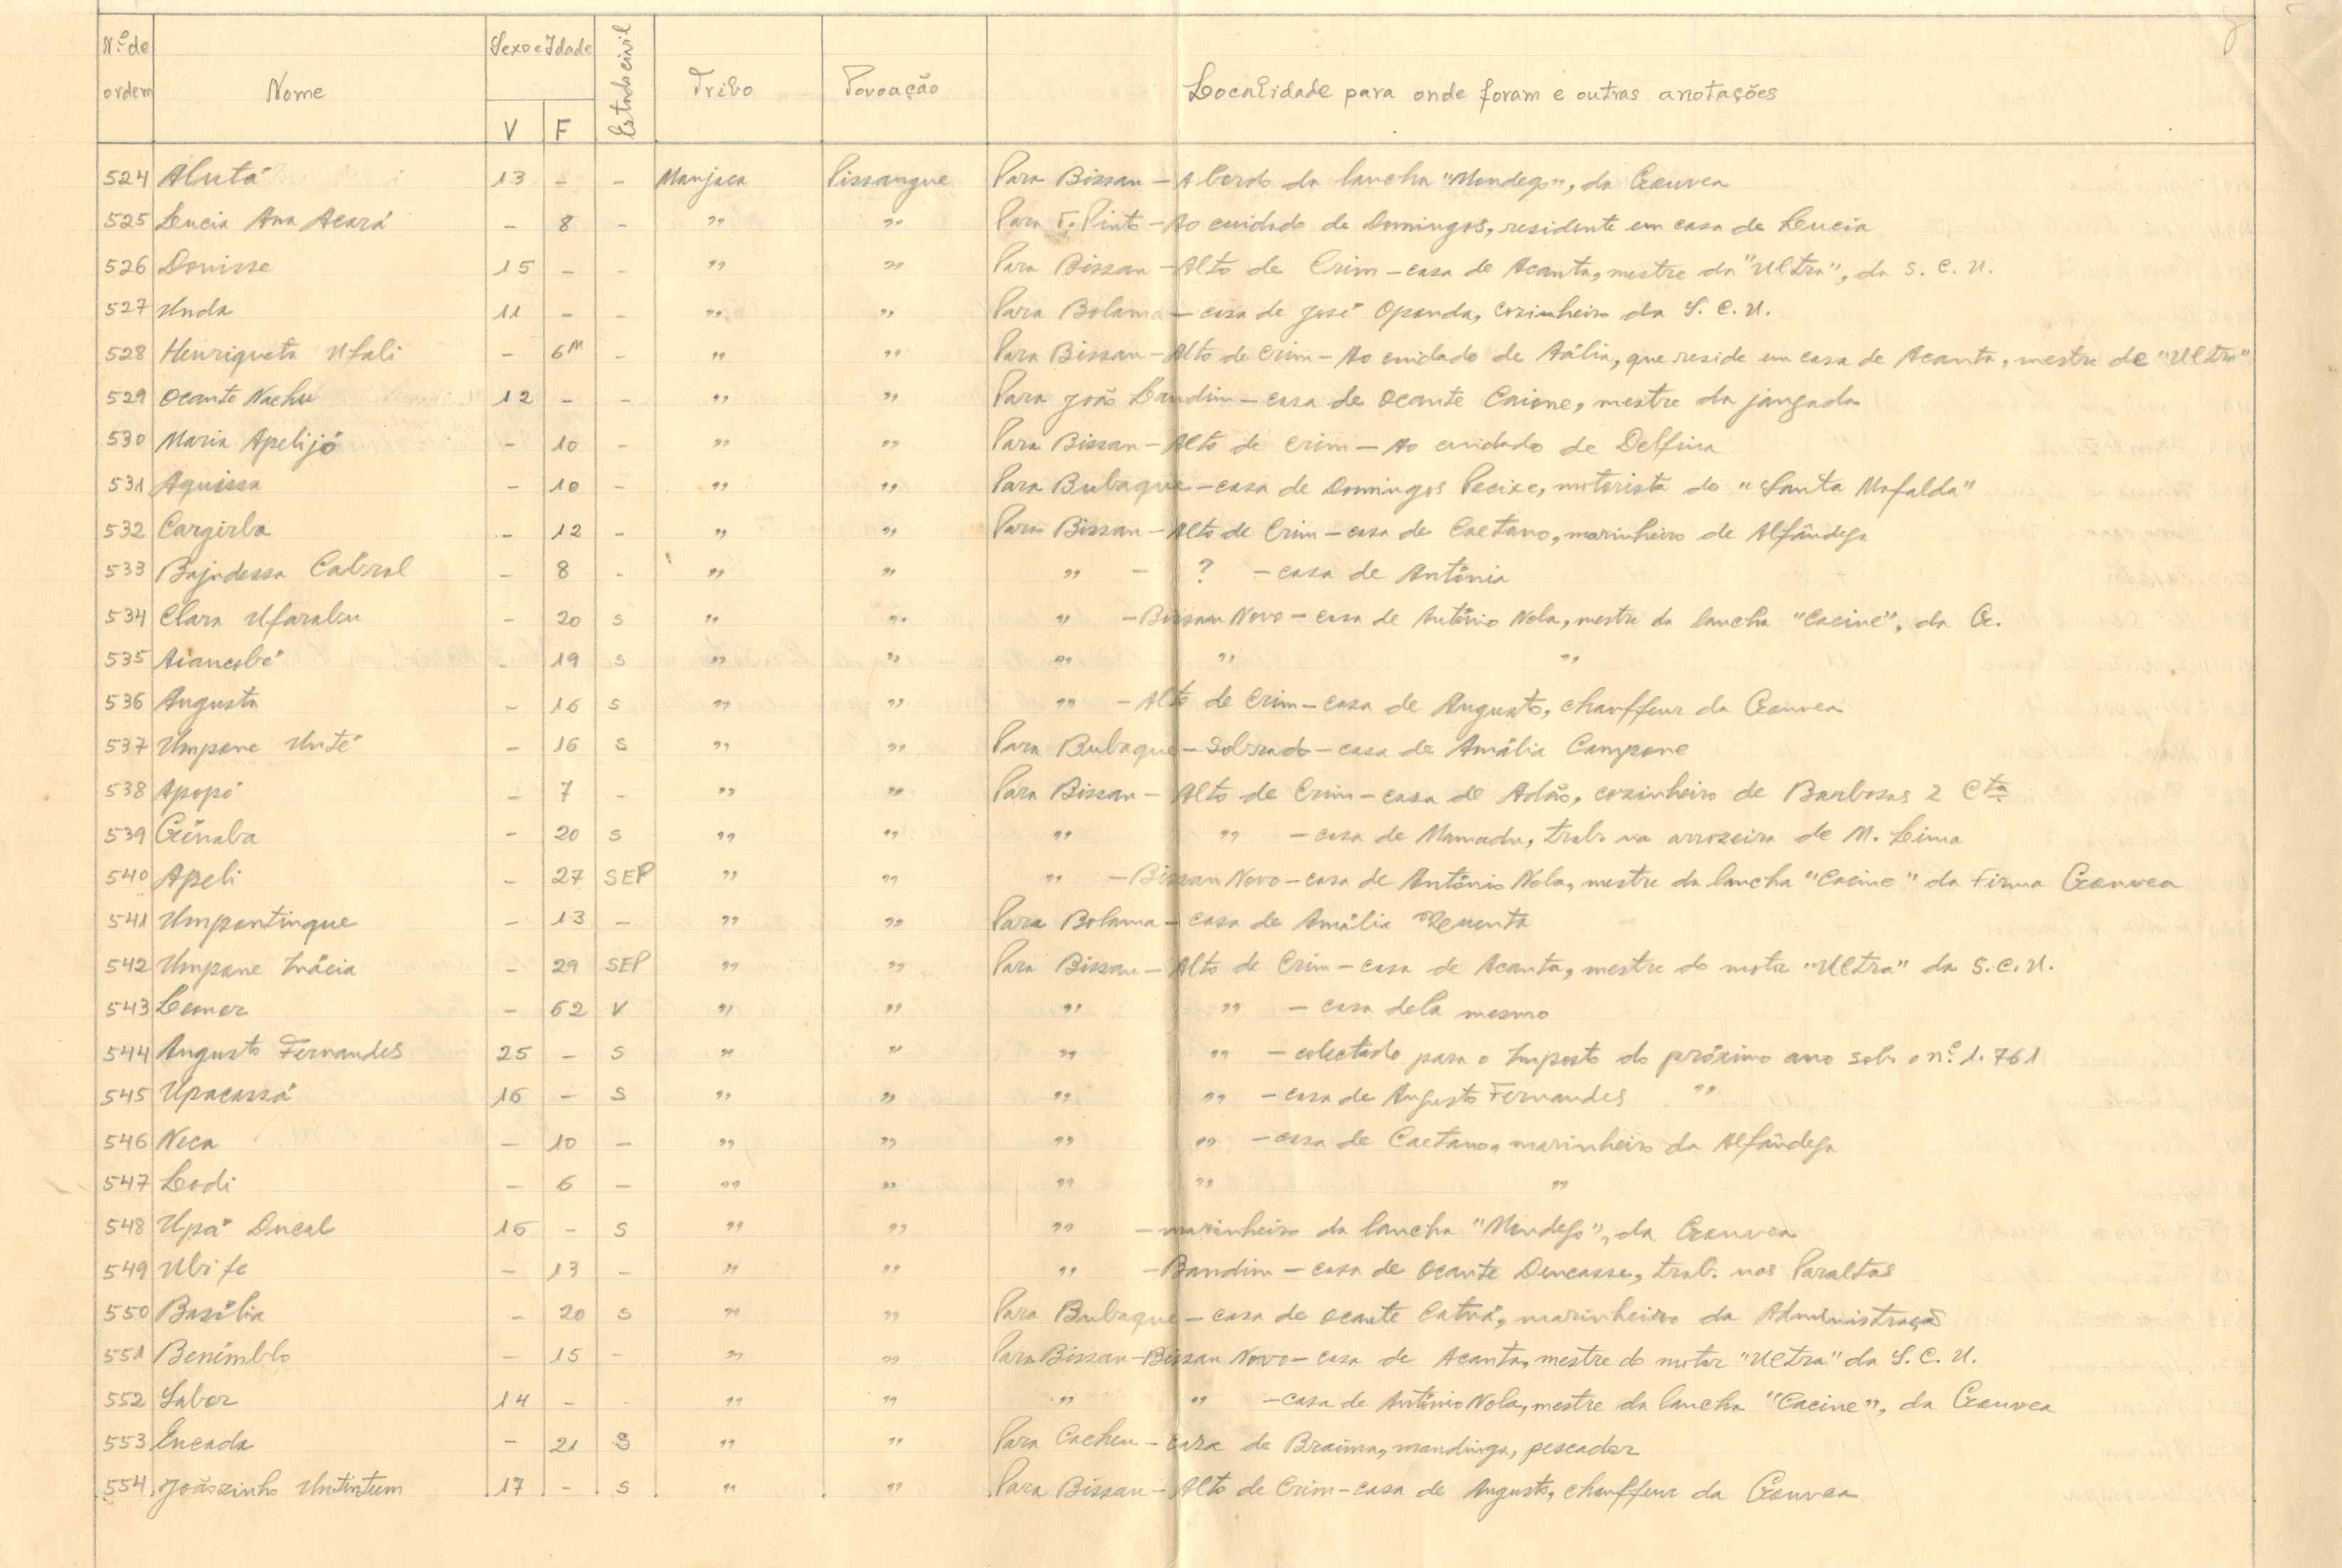 Nº de ordem Nome Sexo e Idade V F Estado civil Tribo Povoação Localidade para onde foram e outras anotações
524 Alutá 13 - - Manjaca Pissangue Para Bissau - A bordo da lancha "Mondego", da Gouvea
525 Lucia Ana Acará - 8 - " " Para T. Pinto - Ao cuidado de Domingos, residente em casa de Lucia
526 Donisse 15 - - " " Para Bissau - Alto de Crim - casa de Acanta, mestre da "Ultra", da S. C. U.
527 Unda 11 - - " " Para Bolama - casa de José Opanda, cozinheiro da S. C. U.
528 Henriqueta Ufali - 6M - " " Para Bissau - Alto de Crim - Ao cuidado de Adália, que reside em casa de Acanta, mestre de "Ultra"
529 Ocante Nachu 12 - - " " Para João Landim - casa de Ocante Caione, mestre da jangada
530 Maria Apelijó - 10 - " " Para Bissau - Alto de Crim - Ao cuidado de Delfina
531 Aquissa - 10 - " " Para Bubaque - casa de Domingos Pecixe, motorista do "Santa Mafalda"
532 Cargirba - 12 - " " Para Bissau - Alto de Crim - casa de Caetano, marinheiro de Alfândega
533 Bajudessa Cabral - 8 - " " " - ? - casa de Antónia
534 Clara Ufarabu - 20 S " " " - Bissau Novo - casa de António Nola, mestre da lancha "Cacine", da G.
535 Aiancobé - 19 S " " " " "
536 Augusta - 16 S " " " - Alto de Crim - casa de Augusto, chauffeur da Gouvea
537 Umpane Unté - 16 S " " Para Bubaque - Sobrado - casa de Amália Campane
538 Apopó - 7 - " " Para Bissau - Alto de Crim - casa de Adão, cozinheiro de Barbosas & Cta
539 Génaba - 20 S " " " " - casa de Mamadu, trab. na arrozeira de M. Lima
540 Apeli - 27 SEP " " " - Bissau Novo - casa de António Nola, mestre da lancha "Cacine" da Firma Gouvea
541 Umpantingue - 13 - " " Para Bolama - casa de Amália
542 Umpane Inácia - 29 SEP " " Para Bissau - Alto de Crim - casa de Acanta, mestre do motor "Ultra" da S. C. U.
543 Lemer - 62 V " " " " - casa dela mesmo
544 Augusto Fernandes 25 - S " " " " - colectado para o Imposto do próximo ano sob o nº 1.761
545 Upacassá 16 - S " " " " - casa de Augusto Fernandes "
546 Neca - 10 - " " " " - casa de Caetano, marinheiro da Alfândega
547 Lodi - 6 - " " " " "
548 Upá Ducal 16 - S " " " - marinheiro da lancha "Mondego", da Gouvea
549 Ubife - 13 - " " " - Bandim - casa de Ocante Dencasse, trab. nos Paraltas
550 Basília - 20 S " " Para Bubaque - casa de Ocante Catuá, marinheiro da Administração
551 Benimblo - 15 - " " Para Bissau - Bissau Novo - casa de Acanta, mestre do motor "Ultra" da S. C. U.
552 Sabor 14 - - " " " " - casa de António Nola, mestre da lancha "Cacine", da Gouvea
553 Encada - 21 S " " Para Cacheu - casa de Braima, mandinga, pescador
554 Joãozinho Untintum 17 - S " " Para Bissau - Alto de Crim - casa de Augusto, chauffeur da Gouvea